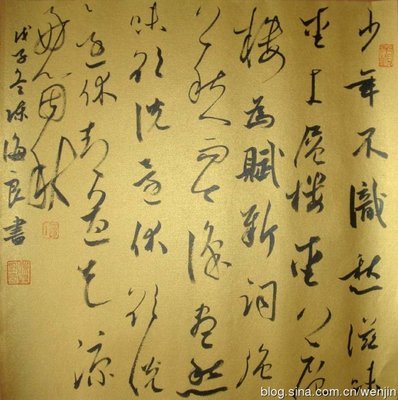 少年不識愁滋味
愛上層樓愛上層
樓為賦新詞强
說愁而今識盡愁
味欲說還休欲說
還休却道天涼
好個秋
戊子冬陳海良書
blog.sina.com.cn/wenjin